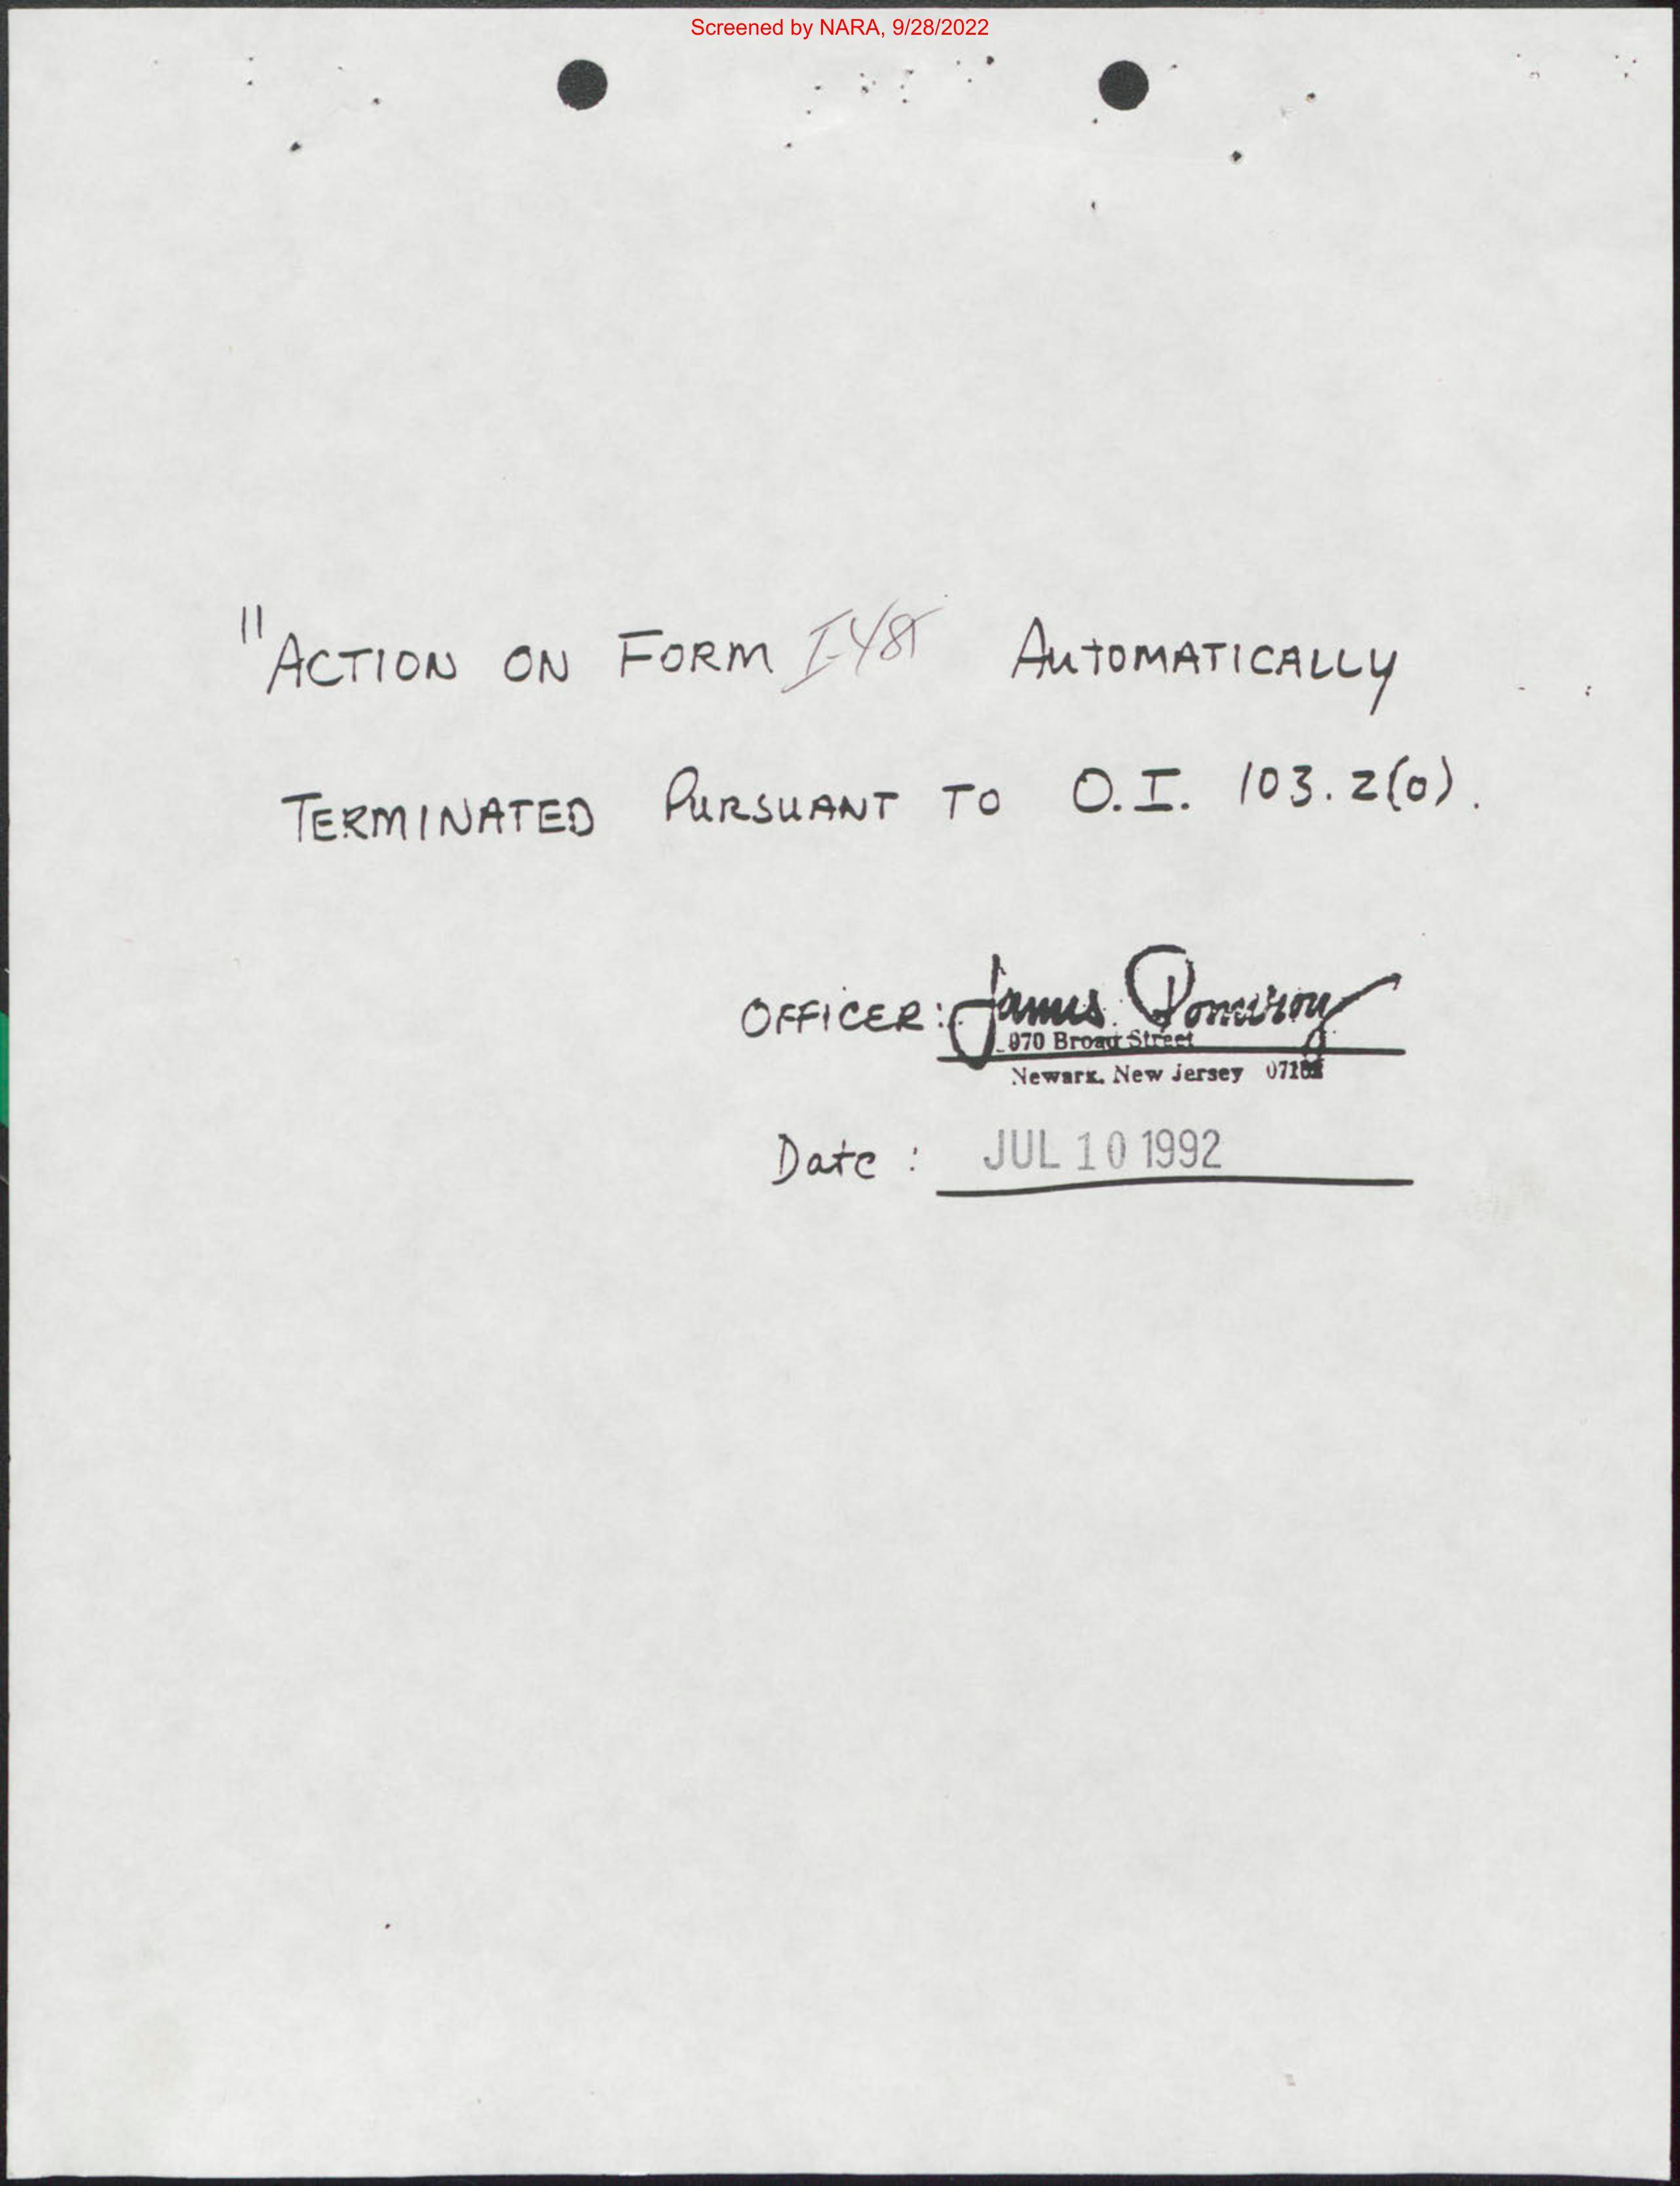 Screened by NARA, 9/28/2022
"ACTION ON FORM I-485 AUTOMATICALLY
TERMINATED PURSUANT TO O.I. 103.2(o).
OFFICER: James Pomeroy
970 Broad Street
Newark, New Jersey
Date: JUL 10 1992